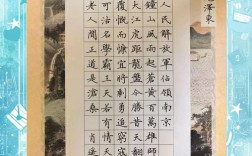 澤東
人民解放軍佔領南京
鐘山風雨起蒼黃百萬雄師
大江虎踞龍盤今勝昔天翻
覆慨而慷宜將剩勇追窮寇
可沽名學霸王天若有情天
老人間正道是滄桑 肖